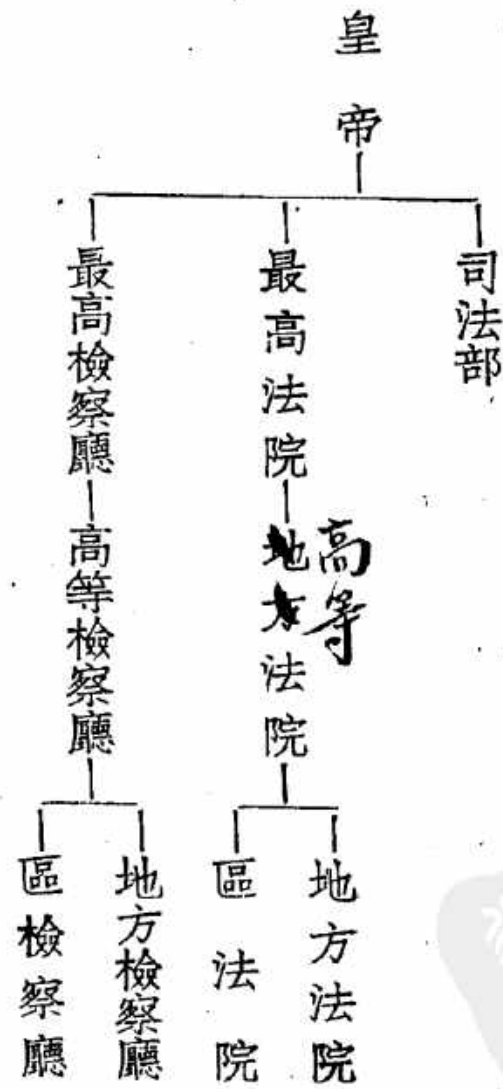 皇帝
司法部
最高法院
地方法院
高等
地方法院
區法院
最高檢察廳
高等檢察廳
地方檢察廳
區檢察廳